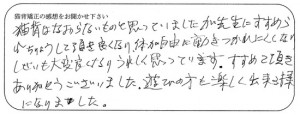 猫背矯正の感想をお聞かせ下さい
猫背はなおらないものと思っていましたが先生にすすめら
れちょうしても頂き良くなり、体が自由に動きつかれにくくなり
しせいも大変良くなりうれしく思っています。すすめて頂き
ありがとうございました。遊びの方も楽しく出来る様
になりました。